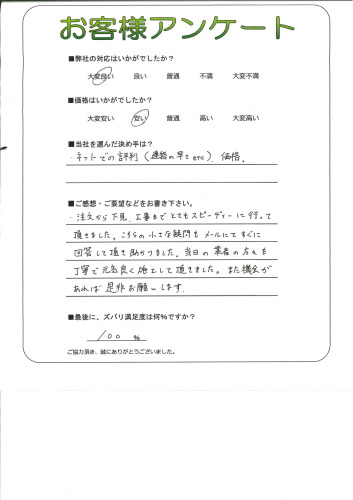 お客様アンケート
■弊社の対応はいかがでしたか?
大変良い 良い 普通 不満 大変不満
■価格はいかがでしたか?
大変安い 安い 普通 高い 大変高い
■当社を選んだ決め手は?
・ネットでの評判(連絡の早さetc)、価格。
■ご感想・ご要望などをお書き下さい。
・注文から下見、工事までとてもスピーディーに行って
頂きました。こちらの小さな疑問もメールにてすぐに
回答して頂き助かりました。当日の業者の方々も
丁寧で元気良く施工して頂きました。また機会が
あれば是非お願いします。
■最後に、ズバリ満足度は何%ですか?
100 %
ご協力頂き、誠にありがとうございました。